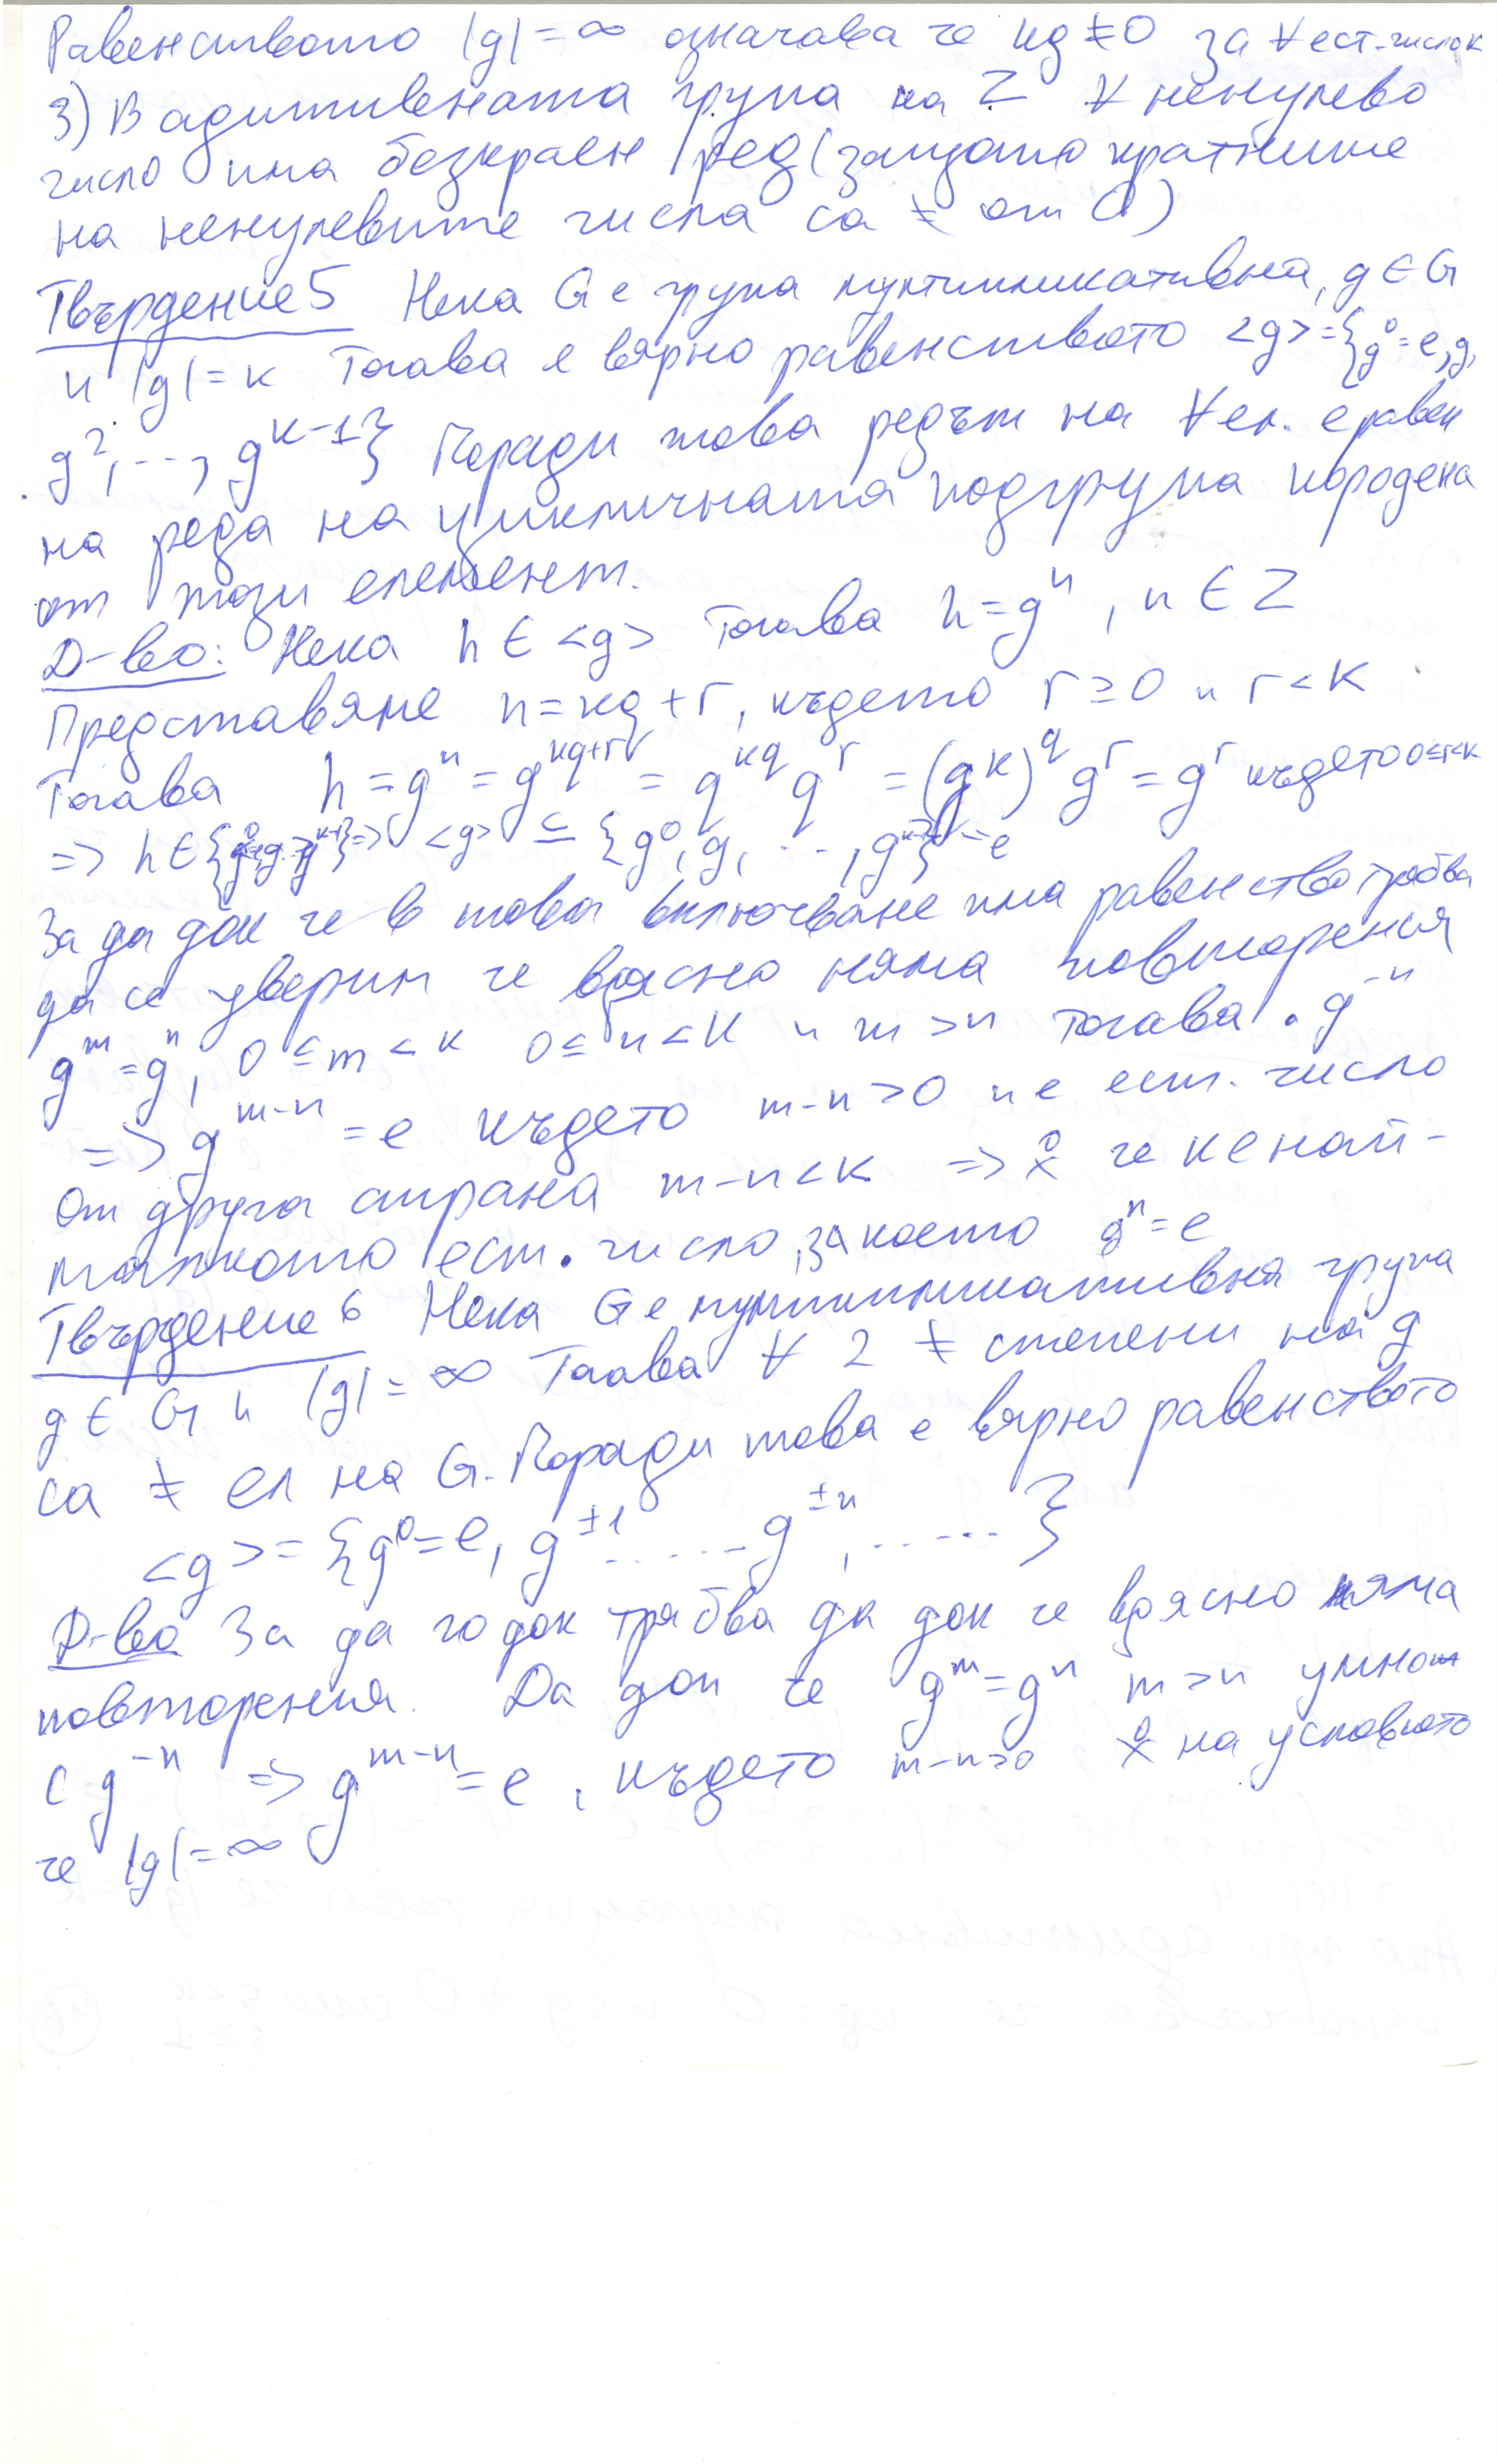 Равенството |g| = ∞ означава че kg ≠ 0 за ∀ ест. число k
3) В адитивната група на Z ∀ ненулево
число има безкраен ред (защото кратните
на ненулевите числа са ≠ от 0)
Твърдение 5 Нека G е група мултипликативна, g ∈ G
и |g| = k Тогава е вярно равенството <g> = {g⁰ = e, g,
g², ..., g^{k-1}} Поради това редът на ∀ ел. е равен
на реда на цикличната подгрупа породена
от този елемент.
Д-во: Нека h ∈ <g> Тогава h = gⁿ, n ∈ Z
Представяме n = kq + r, където r ≥ 0 и r < k
Тогава h = gⁿ = g^{kq+r} = g^{kq} g^r = (g^k)^q g^r = g^r където 0≤r<k
=> h ∈ {g⁰, g, ..., g^{k-1}} => <g> ⊆ {g⁰, g, ..., g^{k-1}} = e
За да док че в това включване има равенство трябва
да се уверим че вдясно няма повторения
g^m = gⁿ, 0 ≤ m < k 0 ≤ n < k и m > n тогава . g^{-n}
=> g^{m-n} = e където m-n > 0 и е ест. число
От друга страна m-n < k => че k е най-
малкото ест. число, за което gⁿ = e
Твърдение 6 Нека G е мултипликативна група
g ∈ G и |g| = ∞ Тогава ∀ 2 ≠ степени на g
са ≠ ел на G. Поради това е вярно равенството
<g> = {g⁰ = e, g^{±1} ...... g^{±n}, ...... }
Д-во За да го док трябва да док че вдясно няма
повторения. Да доп че g^m = gⁿ m > n умнож
с g^{-n} => g^{m-n} = e, където m-n>0 на условието
че |g| = ∞